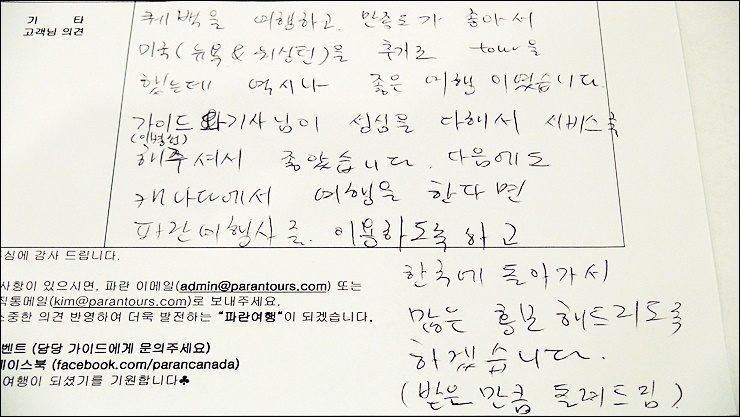 기 타
고객님 의견
퀘백을 여행하고. 만족도가 좋아서
미국(뉴욕 & 워싱턴)을 추가로 tour을
했는데 역시나 좋은 여행 이였습니다.
가이드와 기사님이 성심을 다해서 서비스를
(이병헌)
해주셔서 좋았습니다. 다음에도
캐나다에서 여행을 한다면
파란여행사를. 이용하도록 하고
한국에 돌아가서
많은 홍보 해드리도록
하겠습니다.
(받은 만큼 돌려드림)
심에 감사 드립니다.
사항이 있으시면, 파란 이메일(admin@parantours.com) 또는
직통메일(kim@parantours.com)로 보내주세요.
소중한 의견 반영하여 더욱 발전하는 "파란여행"이 되겠습니다.
벤트 (담당 가이드에게 문의주세요)
페이스북 (facebook.com/parancanada)
여행이 되셨기를 기원합니다♣